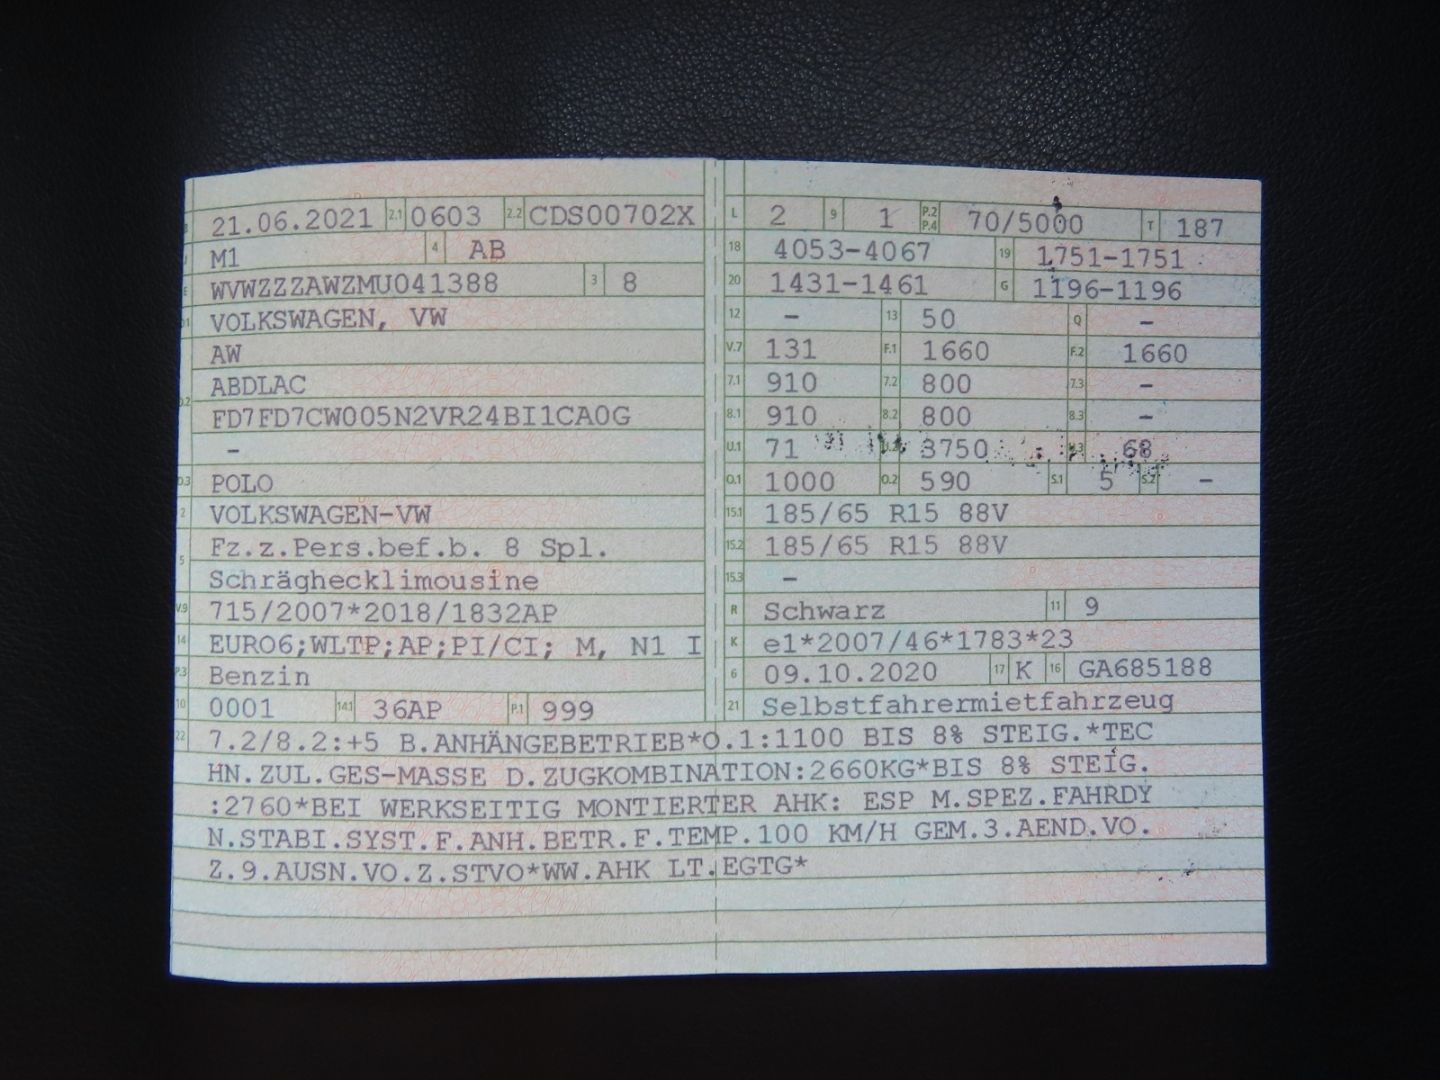 21.06.2021 2.1 0603 2.2 CDS00702X
M1 4 AB
WVWZZZAWZMU041388 3 8
VOLKSWAGEN, VW
AW
ABDLAC
FD7FD7CW005N2VR24BI1CA0G
-
D.3 POLO
2 VOLKSWAGEN-VW
5 Fz.z.Pers.bef.b. 8 Spl.
Schräghecklimousine
V.9 715/2007*2018/1832AP
14 EURO6;WLTP;AP;PI/CI; M, N1 I
P.3 Benzin
10 0001 14.1 36AP P.1 999
L 2 9 1 P.2 P.4 70/5000 T 187
18 4053-4067 19 1751-1751
20 1431-1461 G 1196-1196
12 - 13 50 Q -
V.7 131 F.1 1660 F.2 1660
7.1 910 7.2 800 7.3 -
8.1 910 8.2 800 8.3 -
U.1 71 U.2 3750 U.3 68
O.1 1000 O.2 590 S.1 5 S.2 -
15.1 185/65 R15 88V
15.2 185/65 R15 88V
15.3 -
R Schwarz 11 9
K e1*2007/46*1783*23
6 09.10.2020 17 K 16 GA685188
21 Selbstfahrermietfahrzeug
22 7.2/8.2:+5 B.ANHÄNGEBETRIEB*O.1:1100 BIS 8% STEIG.*TEC
HN.ZUL.GES-MASSE D.ZUGKOMBINATION:2660KG*BIS 8% STEIG.
:2760*BEI WERKSEITIG MONTIERTER AHK: ESP M.SPEZ.FAHRDY
N.STABI.SYST.F.ANH.BETR.F.TEMP.100 KM/H GEM.3.AEND.VO.
Z.9.AUSN.VO.Z.STVO*WW.AHK LT.EGTG*